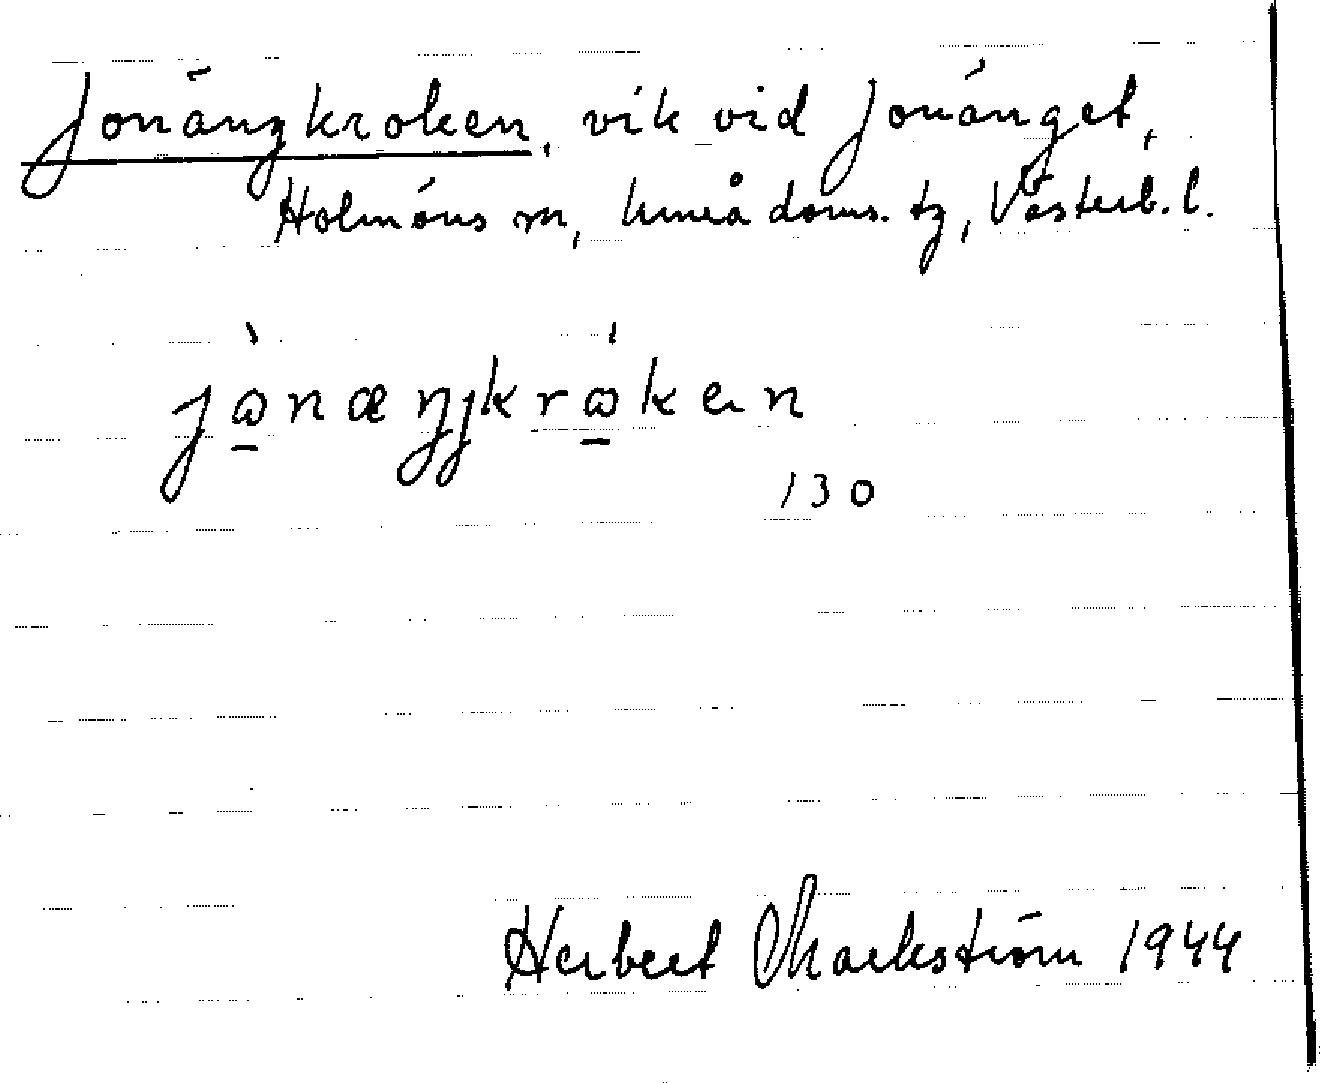 Jonängkroken, vik vid Jonänget,
Holmöns sn, Umeå doms. tg, Västerb. l.
jònæŋjkrók en
130
Herbert Markström 1944